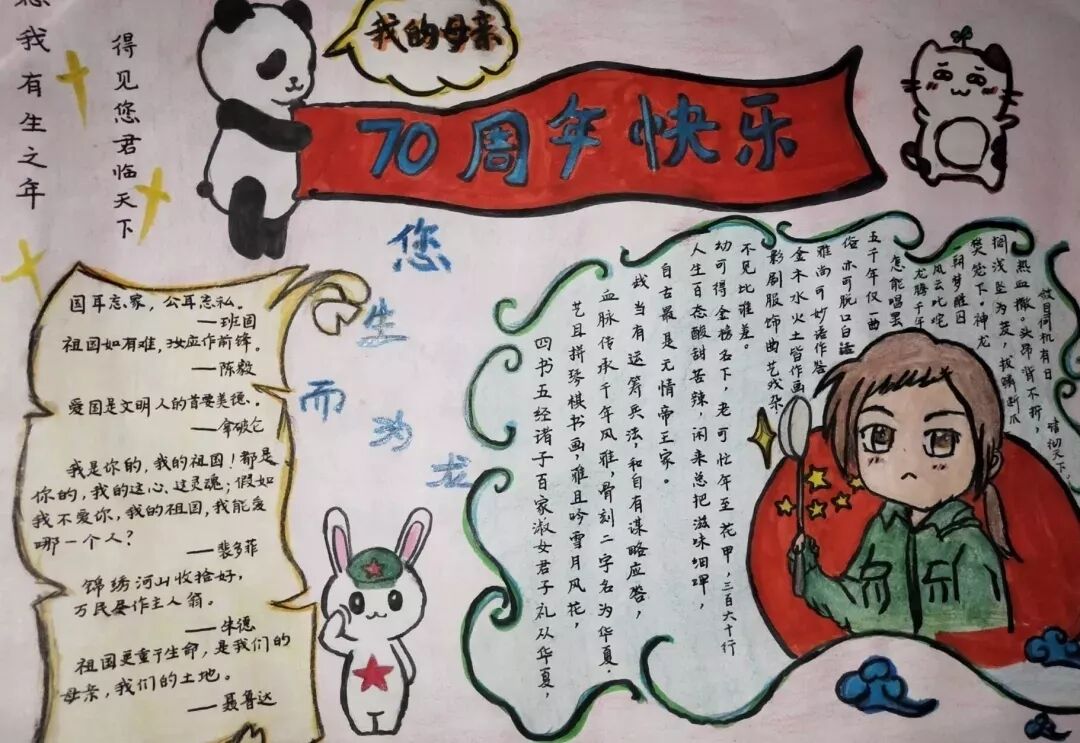 我有生之年
得见您君临天下
我的母亲
70周年快乐
您
生
而
为
龙
国耳忘家，公耳忘私。
——班固
祖国如有难，汝应作前锋。
——陈毅
爱国是文明人的首要美德。
——拿破仑
我是你的，我的祖国！都是
你的，我的这心、这灵魂；假如
我不爱你，我的祖国，我能爱
哪一个人？
——裴多菲
锦绣河山收拾好，
万民尽作主人翁。
——朱德
祖国更重于生命，是我们的
母亲，我们的土地。
——聂鲁达
四书五经诸子百家淑女君子礼从华夏，
艺且拼琴棋书画，雅且吟雪月风花，
血脉传承千年风雅，骨刻二字名为华夏。
我当有运筹兵法，和自有谋略应答，
自古最是无情帝王家。
人生百态酸甜苦辣，闲来总把滋味细呷，
幼可得金榜名下，老可忙年至花甲，三百六十行
不见比谁差。
影剧服饰曲艺戏杂
金木水火土皆作画
雅尚可妙语作答
俗亦可脱口白话
五千年仅一曲
怎能唱罢
龙腾千年
风云叱咤
一朝梦醒因
樊笼下。神龙
搁浅坠为，拔鳞断爪
热血撒。头昂背不折，啸彻天下，
目伺机有日